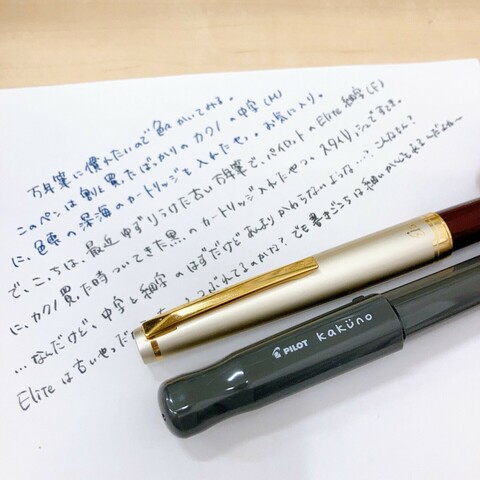 万年筆に慣れたいので色々かいてみる。
このペンは割と買ったばっかりのカクノの中字(M)
に、色雫の深海のカートリッジを入れたやつ。お気に入り。
で、こっちは、最近ゆずりうけた古い万年筆で、パイロットのElite細字(F)
に、カクノ買った時ついてきた黒のカートリッジ入れたやつ。スタイリッシュですてき。
…なんだけど、中字と細字のはずだけどあんまりかわらないような…?こんなもん?
Eliteは古いやつだ つぶれてるのかな?でも書きごこちは細い
PILOT kaküno